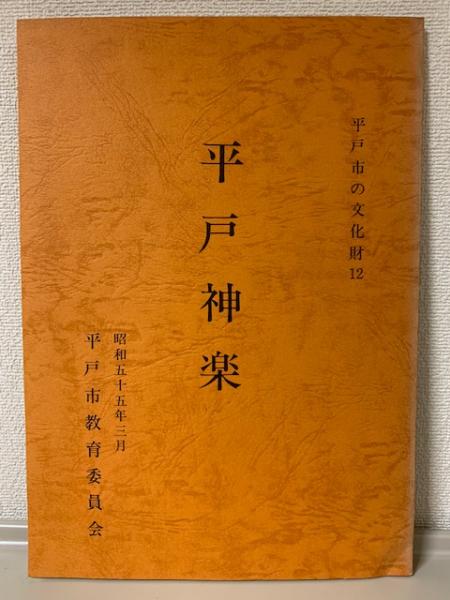 平戸市の文化財12
平戸神楽
昭和五十五年三月
平戸市教育委員会